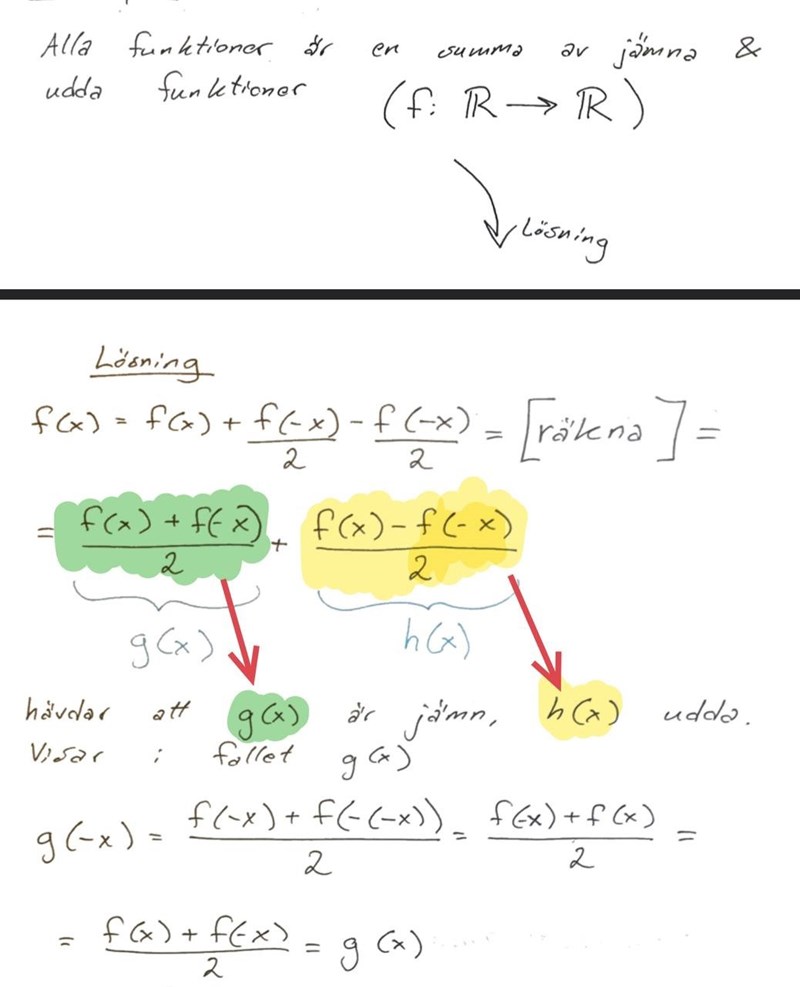 Alla funktioner är en summa av jämna &
udda funktioner (f: ℝ → ℝ)
Lösning
Lösning
f(x) = f(x) + f(-x)/2 - f(-x)/2 = [räkna] =
= (f(x) + f(-x))/2 + (f(x) - f(-x))/2
g(x) h(x)
hävdar att g(x) är jämn, h(x) udda.
Visar i fallet g(x)
g(-x) = (f(-x) + f(-(-x)))/2 = (f(-x) + f(x))/2 =
= (f(x) + f(-x))/2 = g(x)